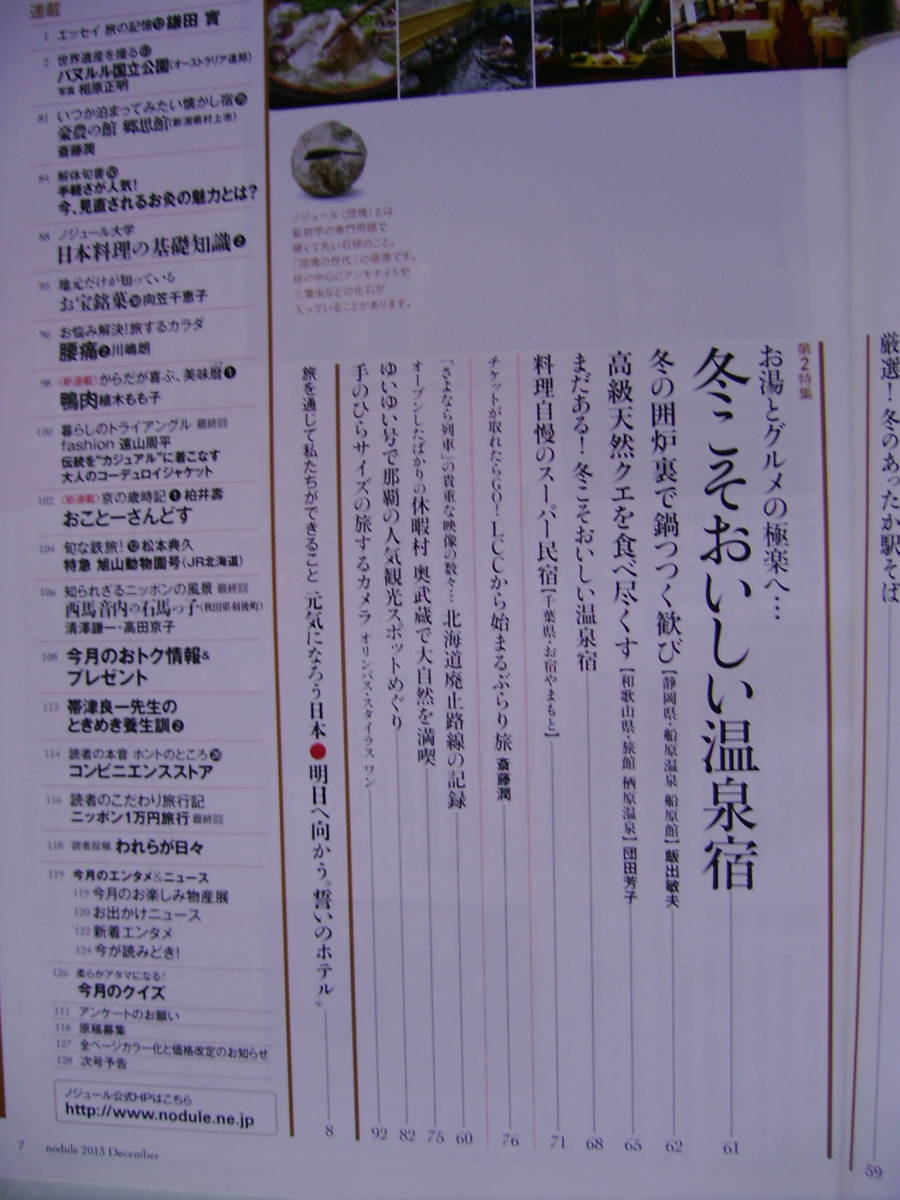 連載
1 エッセイ 旅の記憶 鎌田 實
2 世界遺産を撮る
パヌルル国立公園(オーストラリア連邦)
写真 相原正明
81 いつか泊まってみたい懐かし宿
豪農の館 郷思館(新潟県村上市)
斎藤潤
84 解体旬書
手軽さが人気!
今、見直されるお灸の魅力とは?
88 ノジュール大学
日本料理の基礎知識❷
95 地元だけが知っている
お宝銘菓 向笠千恵子
96 お悩み解決!旅するカラダ
腰痛❷川嶋朗
98 〈新連載〉からだが喜ぶ、美味暦❶
鴨肉 植木もも子
100 暮らしのトライアングル 最終回
fashion 遠山周平
伝統を“カジュアル”に着こなす
大人のコーデュロイジャケット
102 〈新連載〉京の歳時記❶ 柏井壽
おことーさんどす
104 旬な鉄旅!⑫ 松本典久
特急 旭山動物園号(JR北海道)
106 知られざるニッポンの風景 最終回
西馬音内の石馬っ子(秋田県羽後町)
清澤謙一・高田京子
108 今月のおトク情報&
プレゼント
113 帯津良一先生の
ときめき養生訓❷
114 読者の本音 ホントのところ⑳
コンビニエンスストア
116 読者のこだわり旅行記
ニッポン1万円旅行 最終回
118 読者投稿 われらが日々
119 今月のエンタメ&ニュース
119 今月のお楽しみ物産展
120 お出かけニュース
122 新着エンタメ
124 今が読みどき!
126 柔らかアタマになる!
今月のクイズ
111 アンケートのお願い
118 原稿募集
127 全ページカラー化と価格改定のお知らせ
128 次号予告
ノジュール公式HPはこちら
http://www.nodule.ne.jp
7 nodule 2013 December
ノジュール(団塊)とは
鉱物学の専門用語で
硬くて丸い石球のこと。
「団塊の世代」の語源です。
球の中心にアンモナイトや
三葉虫などの化石が
入っていることがあります。
厳選!冬のあったか駅そば 59
第2特集
お湯とグルメの極楽へ…
冬こそおいしい温泉宿 61
冬の囲炉裏で鍋つつく歓び【静岡県・船原温泉 船原館】飯出敏夫 62
高級天然クエを食べ尽くす【和歌山県・旅館 栖原温泉】団田芳子 65
まだある!冬こそおいしい温泉宿 68
料理自慢のスーパー民宿【千葉県・お宿やまもと】 71
チケットが取れたらGO!LCCから始まるぶらり旅 斎藤潤 76
「さよなら列車」の貴重な映像の数々… 北海道廃止路線の記録 60
オープンしたばかりの休暇村 奥武蔵で大自然を満喫 75
ゆいゆい号で那覇の人気観光スポットめぐり 82
手のひらサイズの旅するカメラ オリンパス・スタイラス ワン 92
旅を通じて私たちができること 元気になろう日本●明日へ向かう“誓いのホテル” 8